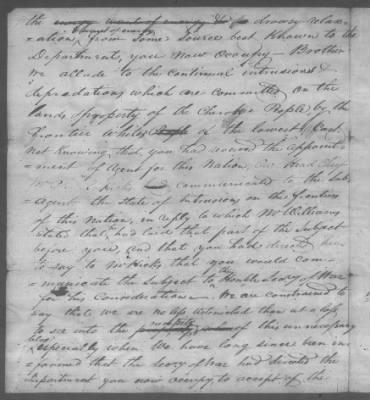 the drowsy relax-
=ation, from some source best known to the
Department, you now occupy — Brother
we allude to the continual intrusions &
depredations which are committed on the
lands & property of the Cherokee People, by the
frontier whites of the lowest Cast.
Not knowing that you had received the appoint-
=ment of Agent for this Nation, Our head Chief
Mr. Hicks communicated to the Sub-
Agent the State of Intrusion on the frontiers
of this Nation, in reply to which Mr Williams
states that he'd laid that part of the Subject
before you, and that you had directed him
to say to Mr Hicks, that you would com-
=municate the Subject to the Honble Secy of War
for his Consideration — We are constrained to
say that we are no less astonished than at a loss
to see into the of this unnecessary
delay especially when we have long since been in-
=formed that the Secy of War had directed the
Department you now occupy to accept of the